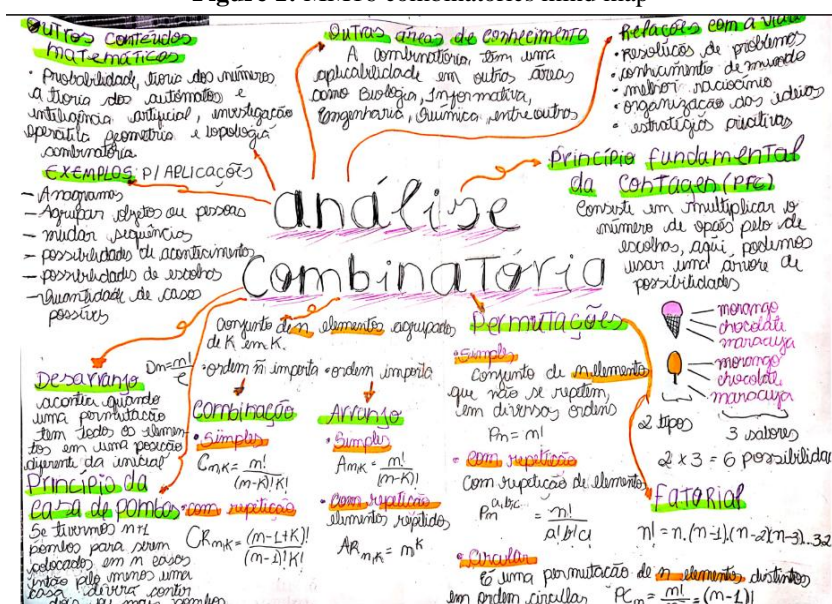 Figure 2: MM116 combinatorics mind map
Outros conteúdos
matemáticos
• Probabilidade, tioria dos números
a tioria dos autômatos e
inteligência artificial, investigação
operatila geometria e topologia
combinatória
EXEMPLOS P/ APLICAÇÕES
- Anagramas
- Agrupar objetos ou pessoas
- mudar sequências
- possibilidades de acontecimentos
- possibilidades de escolhas
- Quantidade de casos
possíveis
Outras áreas de conhecimento
A combinatória tem uma
aplicabilidade em outras áreas
como Biologia, Informativa,
Engenharia, Química, entre outros
Relações com a vida
• resolução de problemas
• conhecimento de mundo
• melhor raciocínio
• organização das ideias
• estratégias criativas
análise
Combinatória
Princípio fundamental
da Contagem (PFC)
Consiste em multiplicar o
número de opções pelo de
escolhas, aqui, podemos
usar uma árvore de
possibilidades
morango
chocolate
maracujá
morango
chocolate
maracujá
2 tipos
3 sabores
2 x 3 = 6 possibilidad
Fatorial
n! = n.(n-1).(n-2)(n-3)...3.2
Conjunto de n elementos agrupados
de K em K.
• ordem ñ importa • ordem importa
Combinação
• Simples
Cn,K = n!/(n-K)!K!
• com repetição
CRn,K = (n-1+K)!/(n-1)!K!
Arranjo
• Simples
An,K = n!/(n-K)!
• Com repetição
elementos repetidos
ARn,K = n^K
Permutações
• Simples
Conjunto de n elementos
que não se repetem,
em diversas ordens
Pn = n!
• Com repetição
Com repetição de elementos
Pn^a,b,c... = n!/a!b!c!
• Circular
É uma permutação de n elementos distintos
em ordem circular PCn = n!/n = (n-1)!
Desarranjo
Dn = n!/e
acontece quando
uma permutação
tem todos os elemen-
tos em uma posição
diferente da inicial
Princípio da
casa de pombos
Se tivermos n+1
pombos para serem
colocados em n casas
então pelo menos uma
casa deverá conter
dois ou mais pombos